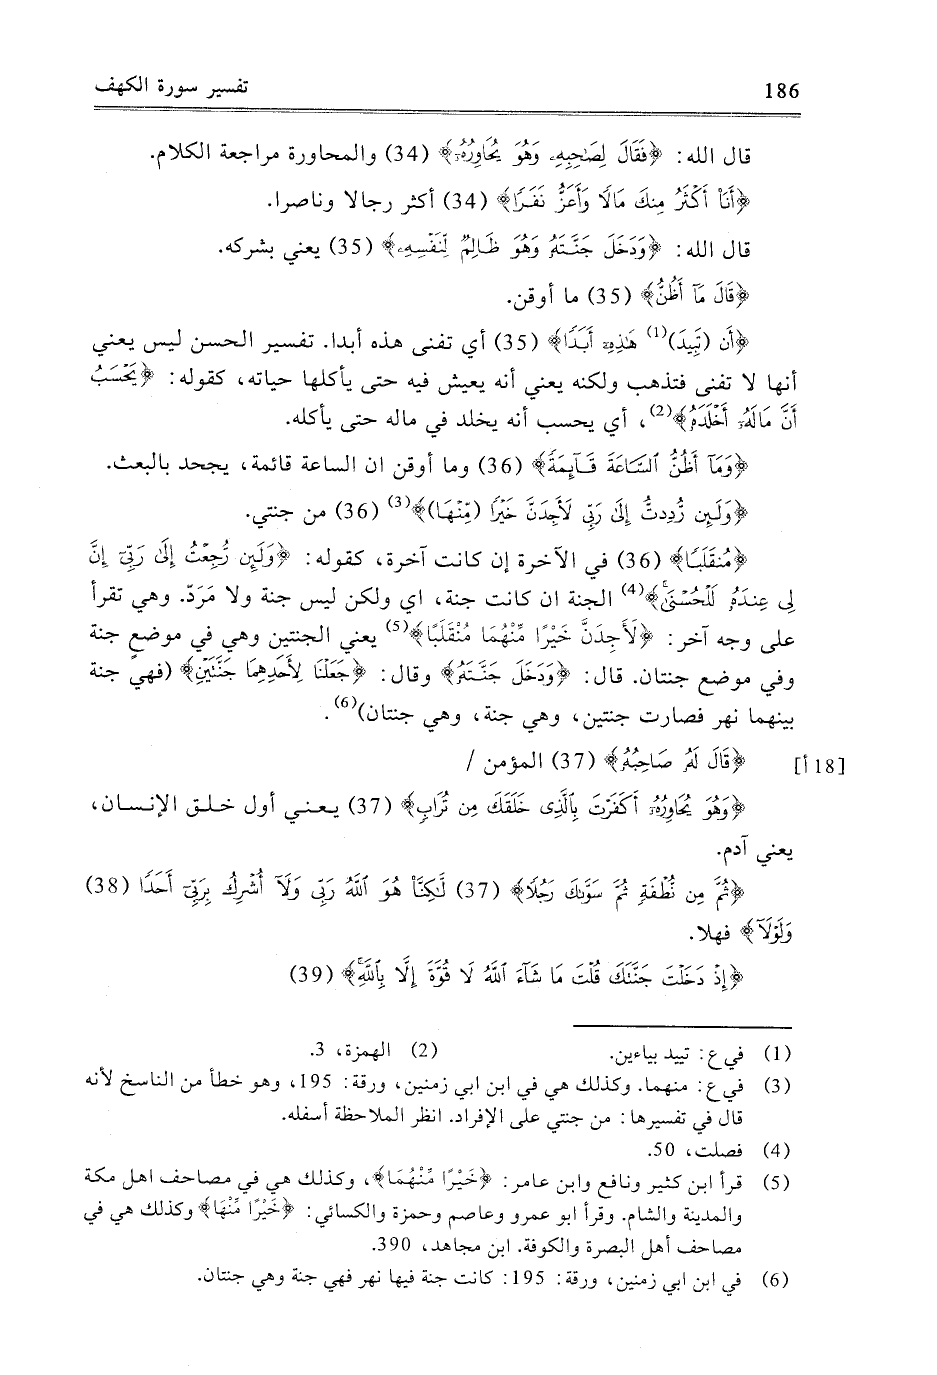 186 تفسير سورة الكهف
قال الله: ﴿فَقَالَ لِصَٰحِبِهِۦ وَهُوَ يُحَاوِرُهُۥٓ﴾ (34) والمحاورة مراجعة الكلام.
﴿أَنَا۠ أَكْثَرُ مِنكَ مَالًا وَأَعَزُّ نَفَرًا﴾ (34) أكثر رجالا وناصرا.
قال الله: ﴿وَدَخَلَ جَنَّتَهُۥ وَهُوَ ظَالِمٌ لِّنَفْسِهِۦ﴾ (35) يعني بشركه.
﴿قَالَ مَآ أَظُنُّ﴾ (35) ما أوقن.
﴿أَن (تَبِيدَ)(1) هَٰذِهِۦٓ أَبَدًا﴾ (35) أي تفنى هذه أبدا. تفسير الحسن ليس يعني
أنها لا تفنى فتذهب ولكنه يعني أنه يعيش فيه حتى يأكلها حياته، كقوله: ﴿يَحْسَبُ
أَنَّ مَالَهُۥٓ أَخْلَدَهُۥ﴾(2)، أي يحسب أنه يخلد في ماله حتى يأكله.
﴿وَمَآ أَظُنُّ ٱلسَّاعَةَ قَآئِمَةً﴾ (36) وما أوقن ان الساعة قائمة، يجحد بالبعث.
﴿وَلَئِن رُّدِدتُّ إِلَىٰ رَبِّى لَأَجِدَنَّ خَيْرًا (مِّنْهَا)﴾(3) (36) من جنتي.
﴿مُنقَلَبًا﴾ (36) في الآخرة إن كانت آخرة، كقوله: ﴿وَلَئِن رُّجِعْتُ إِلَىٰ رَبِّىٓ إِنَّ
لِى عِندَهُۥ لَلْحُسْنَىٰ﴾(4) الجنة ان كانت جنة، اي ولكن ليس جنة ولا مَرَدّ. وهي تقرأ
على وجه آخر: ﴿لَأَجِدَنَّ خَيْرًا مِّنْهُمَا مُنْقَلَبًا﴾(5) يعني الجنتين وهي في موضع جنة
وفي موضع جنتان. قال: ﴿وَدَخَلَ جَنَّتَهُۥ﴾ وقال: ﴿جَعَلْنَا لِأَحَدِهِمَا جَنَّتَيْنِ﴾ (فهي جنة
بينهما نهر فصارت جنتين، وهي جنة، وهي جنتان)(6).
[18أ] ﴿قَالَ لَهُۥ صَاحِبُهُۥ﴾ (37) المؤمن /
﴿وَهُوَ يُحَاوِرُهُۥٓ أَكَفَرْتَ بِٱلَّذِى خَلَقَكَ مِن تُرَابٍ﴾ (37) يعني أول خلق الإنسان،
يعني آدم.
﴿ثُمَّ مِن نُّطْفَةٍ ثُمَّ سَوَّىٰكَ رَجُلًا﴾ (37) لَّٰكِنَّا۠ هُوَ ٱللَّهُ رَبِّى وَلَآ أُشْرِكُ بِرَبِّىٓ أَحَدًا (38)
وَلَوْلَآ﴾ فهلا.
﴿إِذْ دَخَلْتَ جَنَّتَكَ قُلْتَ مَا شَآءَ ٱللَّهُ لَا قُوَّةَ إِلَّا بِٱللَّهِ﴾ (39)
(1) في ع: تييد بياءين. (2) الهمزة، 3.
(3) في ع: منهما. وكذلك هي في ابن ابي زمنين، ورقة: 195، وهو خطأ من الناسخ لأنه
قال في تفسيرها: من جنتي على الإفراد. انظر الملاحظة أسفله.
(4) فصلت، 50.
(5) قرأ ابن كثير ونافع وابن عامر: ﴿خَيْرًا مِّنْهُمَا﴾، وكذلك هي في مصاحف اهل مكة
والمدينة والشام. وقرأ ابو عمرو وعاصم وحمزة والكسائي: ﴿خَيْرًا مِّنْهَا﴾ وكذلك هي في
مصاحف أهل البصرة والكوفة. ابن مجاهد، 390.
(6) في ابن ابي زمنين، ورقة: 195: كانت جنة فيها نهر فهي جنة وهي جنتان.